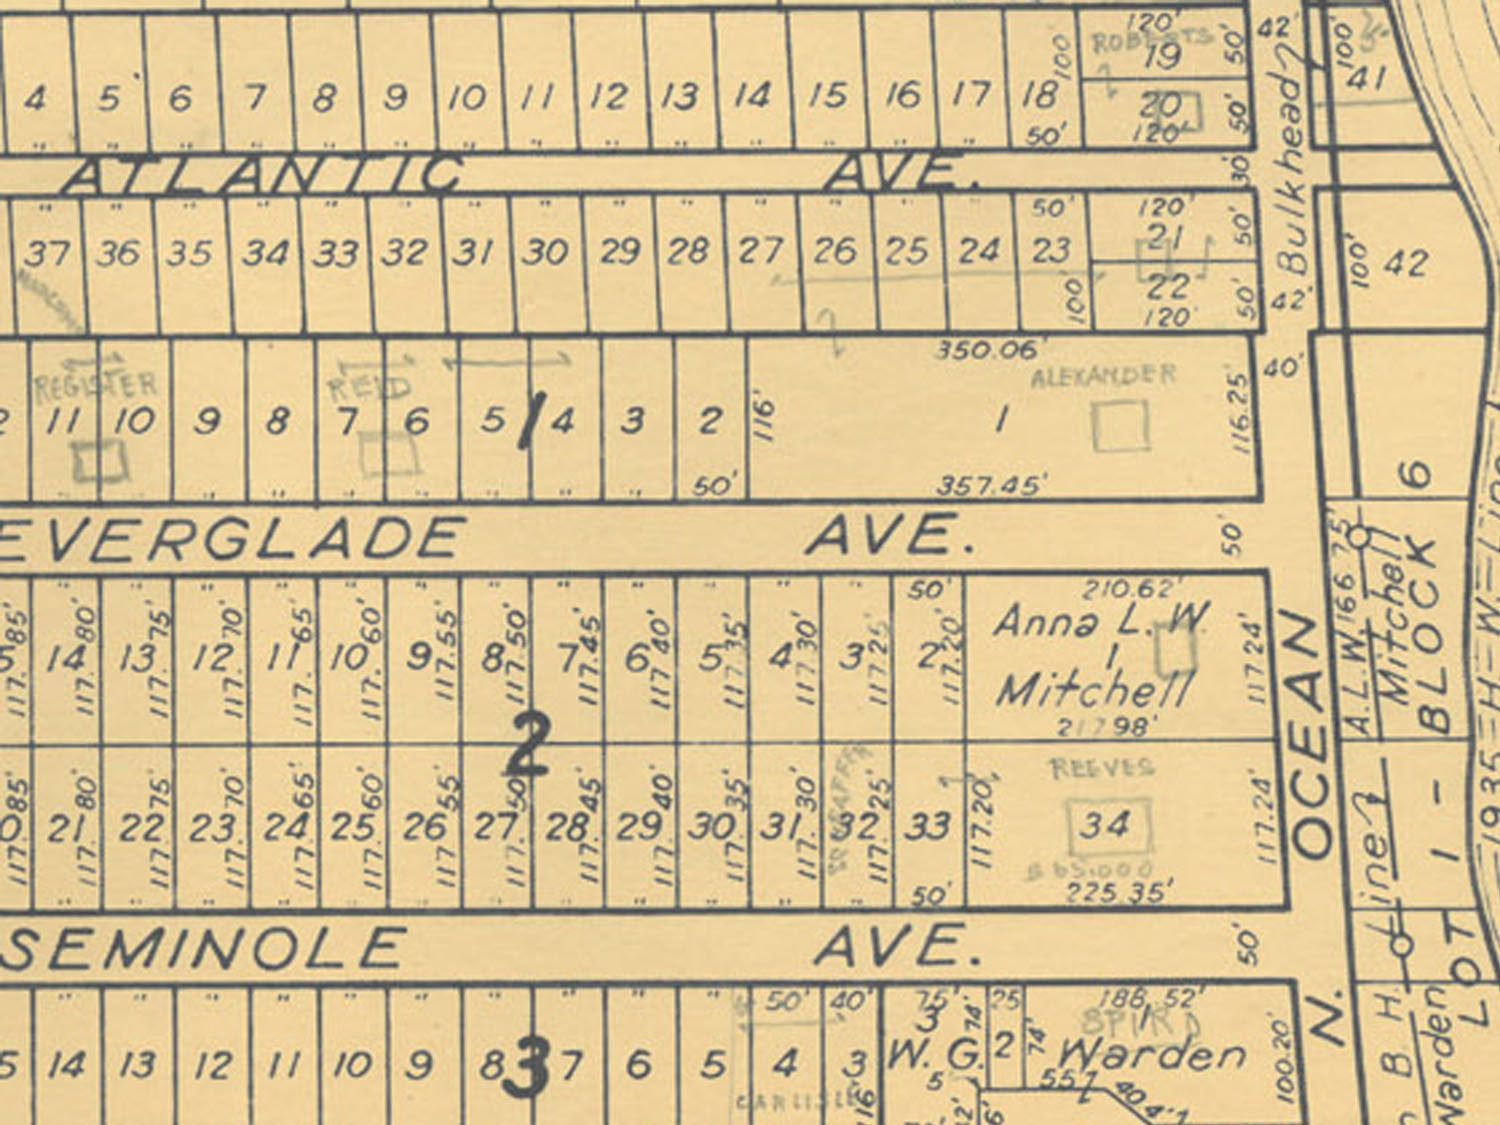 120'
ROBERTS
4 5 6 7 8 9 10 11 12 13 14 15 16 17 18 100' 19 50' 42' 100' 41
20 50'
50' 120'
ATLANTIC AVE. 30'
Bulkhead
50' 120'
37 36 35 34 33 32 31 30 29 28 27 26 25 24 23 21 50' 100' 42
100' 22 50' 42'
120'
350.06' 40'
REGISTER REID ALEXANDER
11 10 9 8 7 6 5 1 4 3 2 116' 1 116.25'
50' 357.45'
6
EVERGLADE AVE. 50'
50' 210.62'
117.85' 14 117.80' 13 117.75' 12 117.70' 11 117.65' 10 117.60' 9 117.55' 8 117.50' 7 117.45' 6 117.40' 5 117.35' 4 117.30' 3 117.25' 2 117.20'
Anna L.W.
1
Mitchell
117.24'
217.98'
A.L.W. 166.75'
Mitchell
BLOCK
2
REEVES
117.85' 21 117.80' 22 117.75' 23 117.70' 24 117.65' 25 117.60' 26 117.55' 27 117.50' 28 117.45' 29 117.40' 30 117.35' 31 117.30' 32 117.25' 33 117.20' 34 117.24'
$65,000
50' 225.35'
OCEAN
Line
1 -
1935-H-W-Line
SEMINOLE AVE. 50'
LOT
50' 40' 75' 25 186.52'
3 74' 1
5 14 13 12 11 10 9 8 3 7 6 5 4 3 W.G. 2 74' Warden 100.20'
5 55' 40
CARLISLE 16
N.
B H
Warden